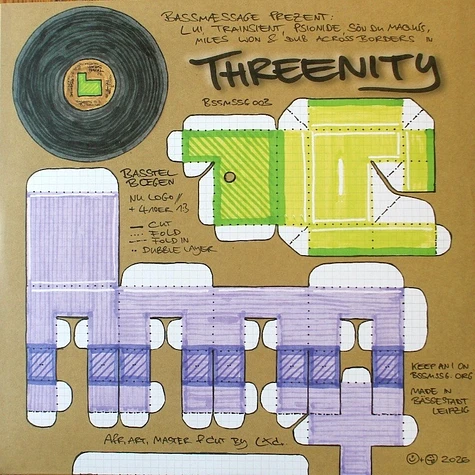 BASSMÆSSAGE PREZENT:
LUI, TRAINSIENT, PSIONIDE, SÖN DU MAQUIS,
MILES WON & DUB ACROSS BORDERS IN
THREENITY
BSSMSSG003
BASSTEL
BOEGEN
NU LOGO //
+ 4 10ER 13
CUT
FOLD
FOLD IN
DUBBLE LAYER
KEEP AN I ON
BSSMSSG.ORG
MADE IN
BÄSSESTADT
LEIPZIG
ART, MASTER & CUT BY
2026